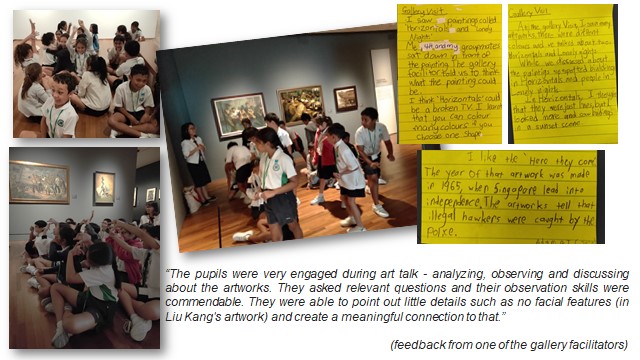 Gallery Visit
I saw paintings called
'Horizontals' and 'Lonely
Night'.
Me, and my groupmates
sat down in front of
the painting. The gallery
told us to think
what the painting could
be.
I think 'Horizontals' could
be a broken T.V. I learnt
that you can colour
many colours if you
choose one shape.
Gallery Visit
At the gallery visit, I saw many
artworks. There were different
colours and we talked about two:
Horizontals and Lonely nights.
While we discussed about
the paintings, we spotted buildings
in Horizontals and people in
Lonely nights.
In Horizontals, I thought
that they were just lines, but I
looked more and saw buildings
in a sunset scene.
I like the 'Here they come'.
The year of that artwork was made
in 1965, when Singapore lead into
independence. The artworks tell that
illegal hawkers were caught by the
Police.
“The pupils were very engaged during art talk - analyzing, observing and discussing
about the artworks. They asked relevant questions and their observation skills were
commendable. They were able to point out little details such as no facial features (in
Liu Kang’s artwork) and create a meaningful connection to that.”
(feedback from one of the gallery facilitators)